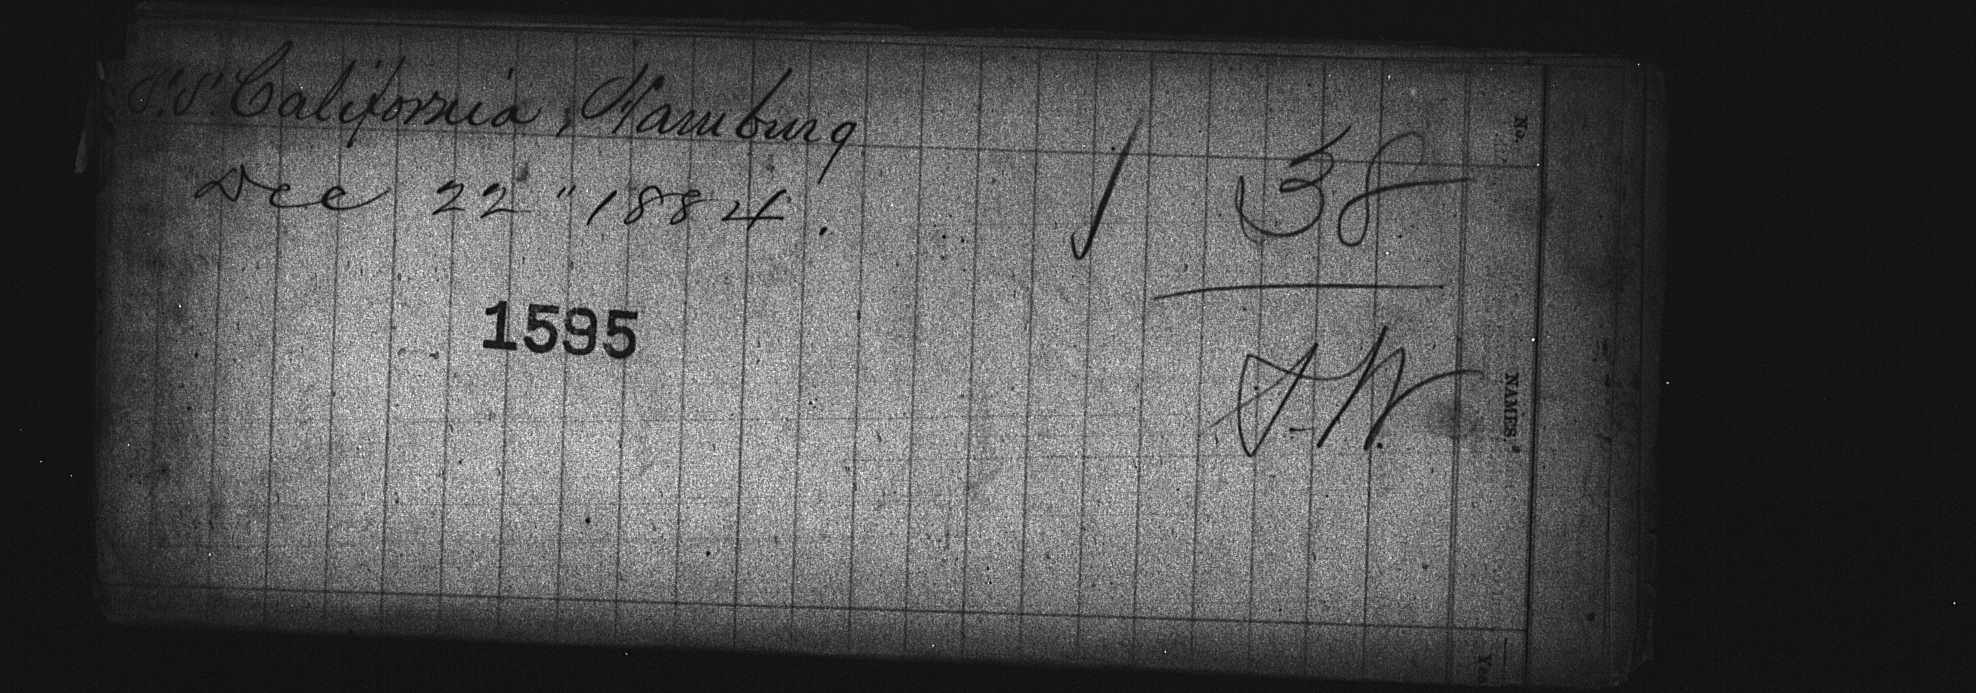 S.S. California, Hamburg
Dec 22" 1884.
1595
38
No.
NAMES.